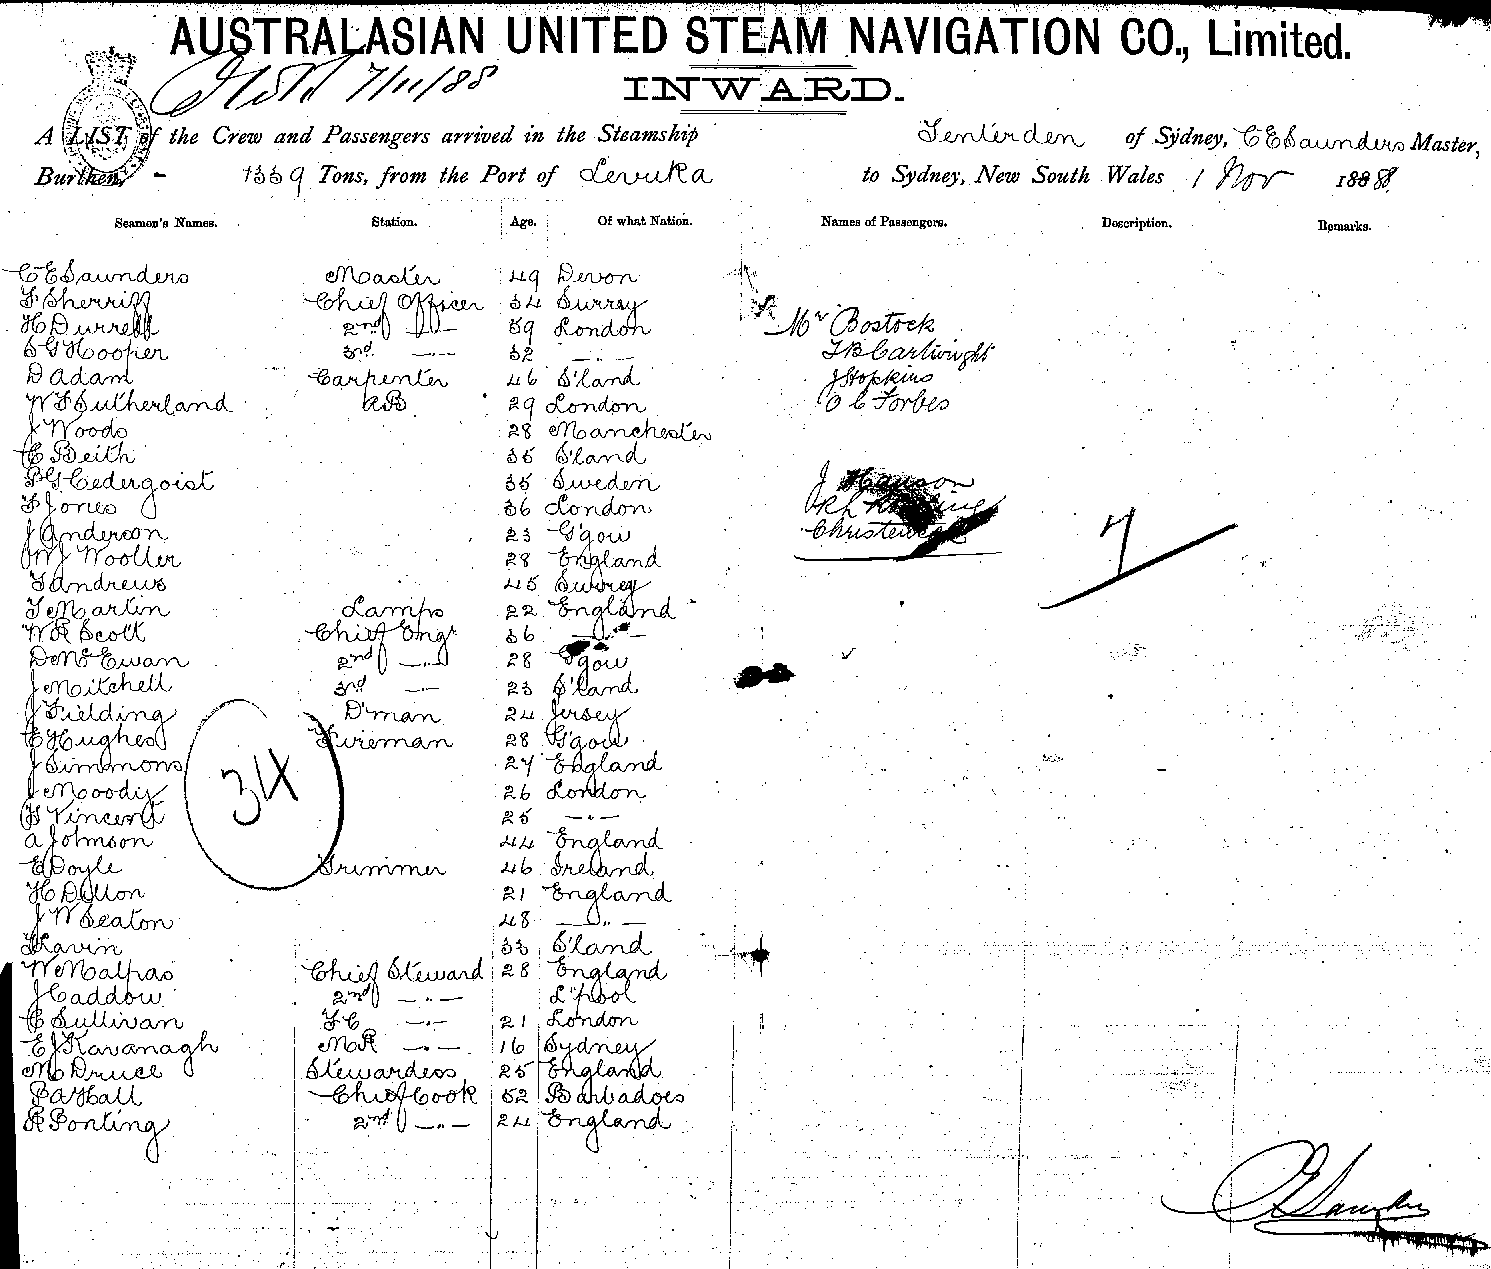 AUSTRALASIAN UNITED STEAM NAVIGATION CO., Limited.
7/11/88
INWARD.
A LIST of the Crew and Passengers arrived in the Steamship Tenterden of Sydney, C E Saunders Master,
Burthen, - 1339 Tons, from the Port of Levuka to Sydney, New South Wales 1 Nov 1888
Seamen's Names. Station. Age. Of what Nation. Names of Passengers. Description. Remarks.
C E Saunders Master 49 Devon
F Sherriff Chief Officer 34 Surrey
H Durrell 2nd -"- 39 London Mr Bostock
S G Hooper 3rd -"- 32 -"- T B Cartwright
D Adam Carpenter 46 S'land J Hopkins
W F Sutherland AB 29 London O C Forbes
J Woods 28 Manchester
C Beith 35 S'land
P G Cedergoist 35 Sweden J Hanson
F Jones 36 London
J Anderson 23 G'gow
W J Wooller 28 England 7
T Andrews 45 Surrey
T Martin Lamps 22 England
W R Scott Chief Engr 36 -"-
D McEwan 2nd -"- 28 G'gow
J Mitchell 3rd -"- 23 S'land
J Fielding D'man 24 Jersey
C Hughes Fireman 28 G'gow
J Simmons 27 England
34
J Moody 26 London
H Vincent 25 -"-
A Johnson 44 England
E Doyle Trimmer 46 Ireland
H Dillon 21 England
J W Seaton 48 -"-
T Lavin 33 S'land
W Malpas Chief Steward 28 England
J Caddow 2nd -"- L'pool
C Sullivan F C -"- 21 London
E J Kavanagh M R -"- 16 Sydney
M Druce Stewardess 25 England
P A Hall Chief Cook 52 Barbadoes
R Ponting 2nd -"- 24 England
C E Saunders